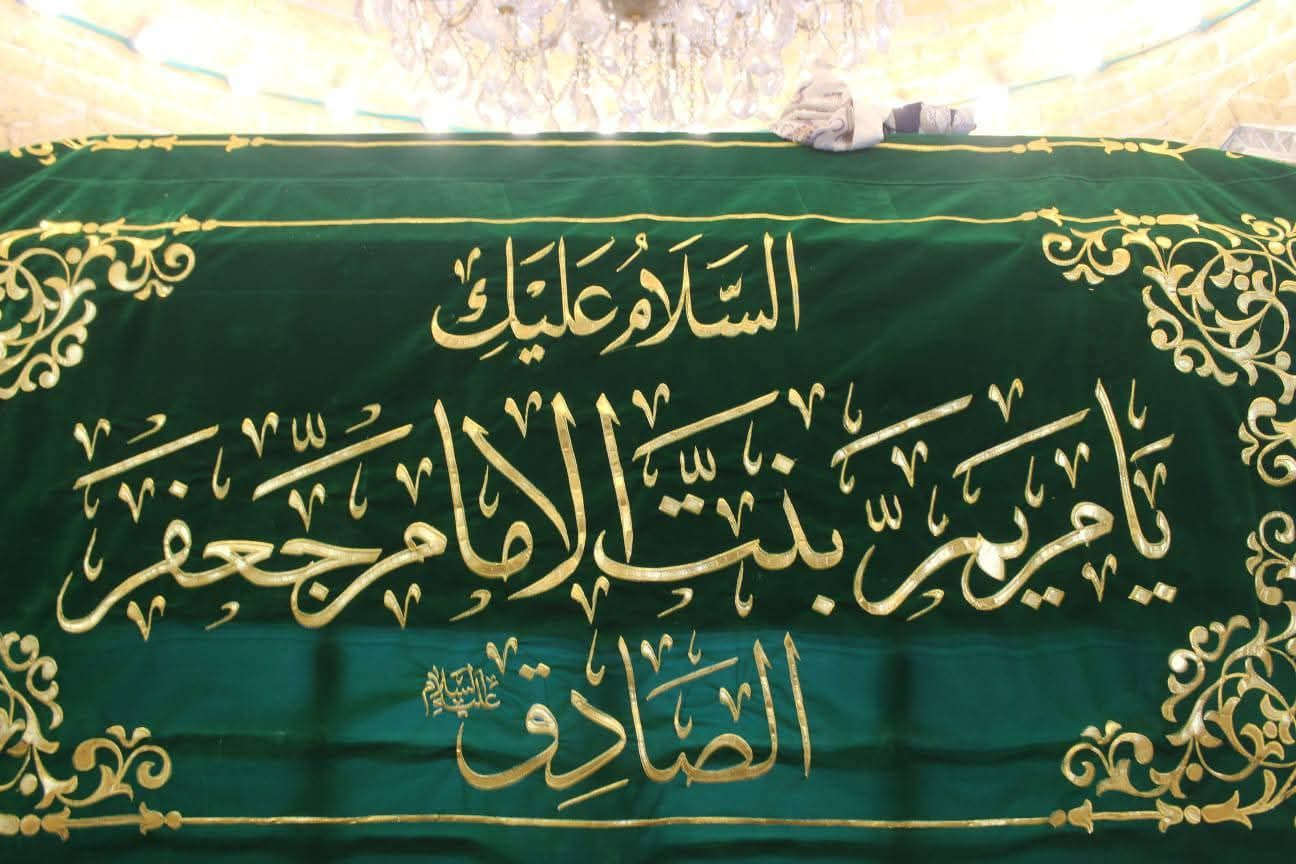 السَّلَامُ عَلَيْكِ
يا مريم بنت الامام جعفر
الصَّادِق عليه السلام